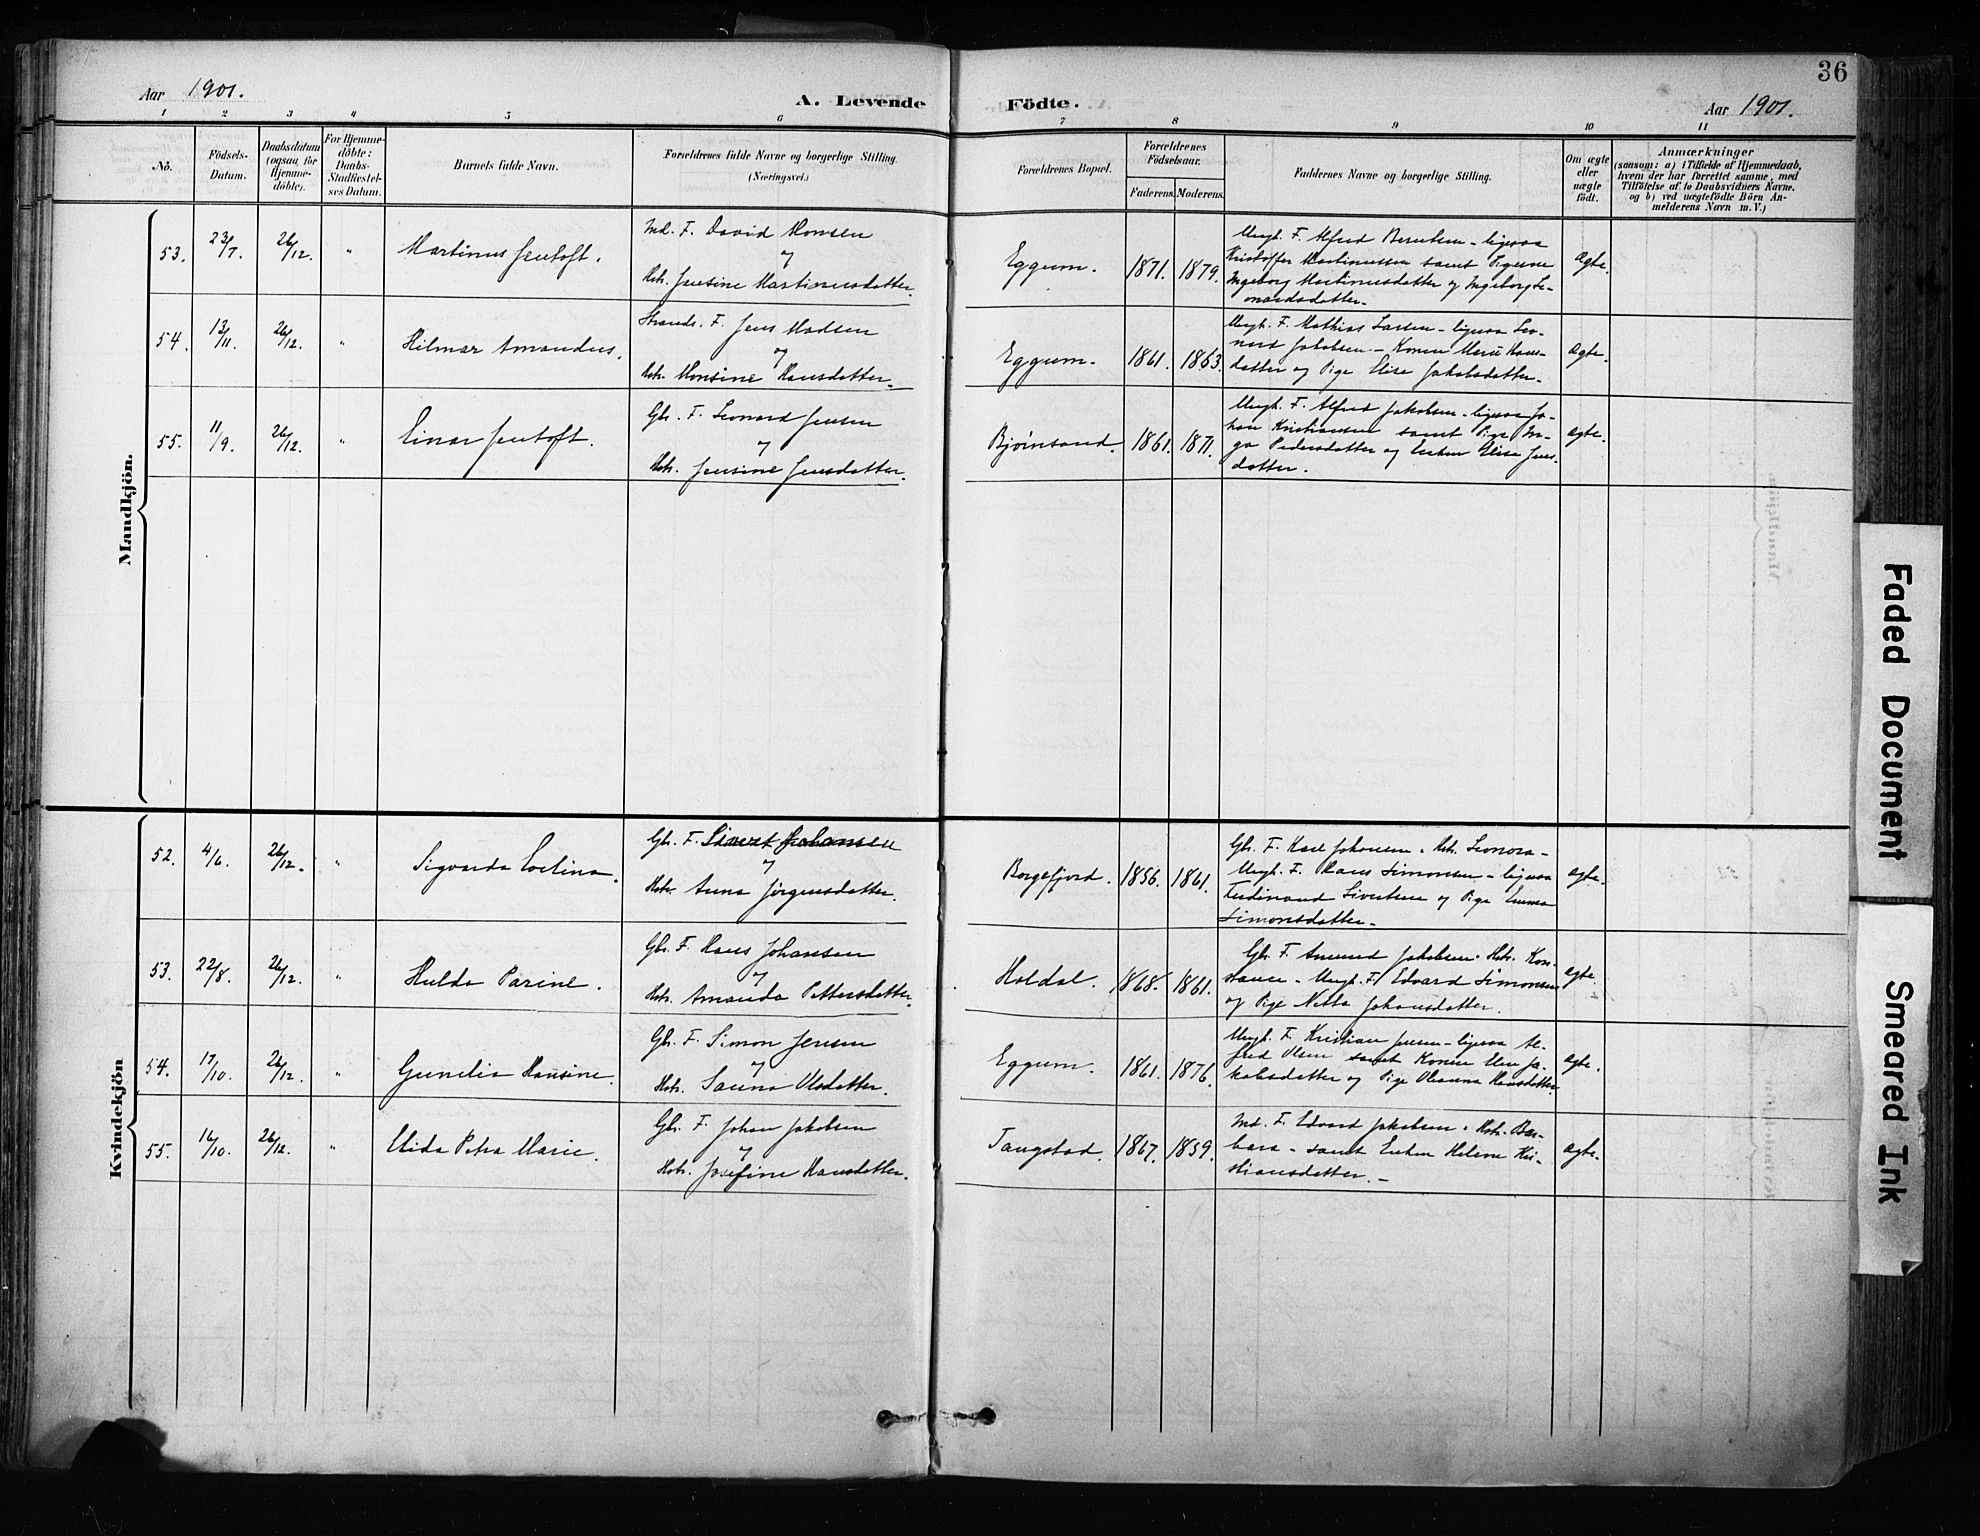 36
Aar 1901.
A. Levende Födte.
Aar 1901.
1 2 3 4 5 6 7 8 9 10 11
No.
Födsels-Datum.
Daabsdatum (ogsaa for Hjemme-döbte).
For Hjemme-döbte: Daabs-Stadfæstel-ses Datum.
Barnets fulde Navn.
Forældrenes fulde Navne og borgerlige Stilling.
(Næringsvei.)
Forældrenes Bopæl.
Forældrenes Födselsaar.
Faderens. Moderens.
Faddernes Navne og borgerlige Stilling.
Om ægte eller uægte født.
Anmærkninger
(saasom: a) i Tilfælde af Hjemmedaab,
hvem der har forrettet samme, med
Tilföielse af to Daabsvidners Navne.
og b) ved uægtefödte Börn An-
melderens Navn m. V.)
Mandkjön.
53. 23/7. 26/12. " Martinus Jentoft.
Ind. F. David Monsen
og
Hstr. Jensine Martinusdatter.
Eggum. 1871. 1879.
Ungk. F. Alfred Berntsen - ligesaa
Kristoffer Martinussen samt Pigerne
Ingeborg Martinusdatter og Ingeborg Le-
onardsdatter.
Ægte.
54. 13/11. 26/12. " Hilmar Amandus.
Strands. F. Jens Madsen
og
Hstr. Monsine Hansdatter.
Eggum. 1861. 1863.
Ungk. F. Mathias Larsen - ligesaa Leo-
nard Jakobsen - Konen Marie Hans-
datter og Pige Elise Jakobsdatter.
Ægte.
55. 11/9. 26/12. " Einar Jentoft.
Gbr. F. Leonard Jensen
og
Hstr. Jensine Jensdatter.
Bjørnsand. 1861. 1871.
Ungk. F. Alfred Jakobsen - ligesaa Jo-
han Kristiansen samt Pige In-
ga Pedersdatter og Enken Elise Jens-
datter.
Ægte.
Kvindekjön
52. 4/6. 26/12. " Sigvarda Evelina.
Gbr. F. Sivert Johansen
og
Hstr. Anna Jørgensdatter.
Borgefjord. 1856. 1861.
Gbr. F. Karl Johansen. Hstr. Leonora -
Ungk. F. Hans Simonsen - ligesaa
Ferdinand Sivertsen og Pige Emma
Simonsdatter.
Ægte.
53. 22/8. 26/12. " Hulda Parine.
Gbr. F. Hans Johansen
og
Hstr. Amanda Pettersdatter.
Holdal. 1868. 1861.
Gbr. F. Amund Jakobsen. Hstr. Kon-
stance - Ungk. F. Edvard Simonsen
og Pige Netta Johansdatter.
Ægte.
54. 17/10. 26/12. " Gunelia Hansine.
Gbr. F. Simon Jensen
og
Hstr. Sanna Olsdatter.
Eggum. 1861. 1876.
Ungk. F. Kristian Jensen - ligesaa Al-
fred Olsen samt Konen Elen Ja-
kobsdatter og Pige Oleanna Hansdatter.
Ægte.
55. 16/10. 26/12. " Uida Petra Marie.
Gbr. F. Johan Jakobsen
og
Hstr. Josefine Hansdatter.
Tangstad. 1867. 1859.
Ind. F. Edvard Jakobsen. Hstr. Bar-
bara - samt Enken Helene Kri-
stiansdatter. -
Ægte.
Faded Document
Smeared Ink